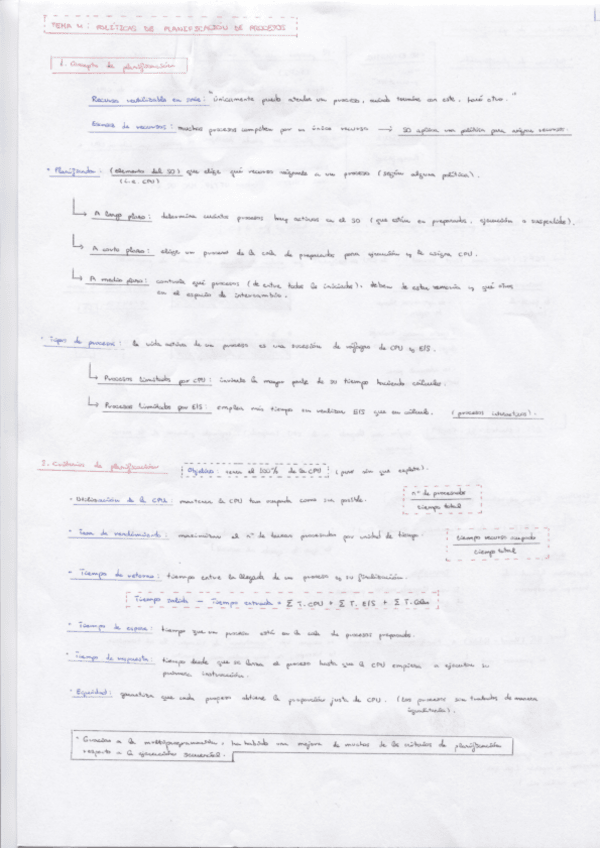 TEMA 4: POLÍTICAS DE PLANIFICACIÓN DE PROCESOS
1. Concepto de planificación
Recurso reutilizable en serie: "únicamente puede atender un proceso, cuando termine con este, hará otro."
Escasez de recursos: muchos procesos compiten por un único recurso → SO aplica una política para asignar recursos.
* Planificador: (elemento del SO) que elige qué recurso asignado a un proceso (según alguna política).
(i.e. CPU)
A largo plazo: determina cuántos procesos hay activos en el SO (que están en preparados, ejecución o suspendidos).
A corto plazo: elige un proceso de la cola de preparados para ejecución y le asigna CPU.
A medio plazo: controla qué procesos (de entre todos los iniciados), deben de estar memoria y qué otros
en el espacio de intercambio.
* Tipos de procesos: la vida activa de un proceso es una sucesión de ráfagas de CPU y E/S.
Procesos limitados por CPU: la mayor parte de su tiempo haciendo cálculos.
Procesos limitados por E/S: emplea más tiempo en realizar E/S que en cálculo. (procesos interactivos).
2. Criterios de planificación
Objetivo: usar el 100% de la CPU (pero sin que explote).
* Utilización de la CPU: mantener la CPU tan ocupada como sea posible.
nº de procesados
tiempo total
* Tasa de rendimiento: maximizar el nº de tareas procesadas por unidad de tiempo.
tiempo recurso ocupado
tiempo total
* Tiempo de retorno: tiempo entre la llegada de un proceso y su finalización.
Tiempo salida - Tiempo entrada = Σ T. CPU + Σ T. E/S + Σ T. Colas
* Tiempo de espera: tiempo que un proceso está en la cola de procesos preparados.
* Tiempo de respuesta: tiempo desde que se lanza el proceso hasta que la CPU empieza a ejecutar su
primera instrucción.
* Equidad: garantiza que cada proceso obtiene la proporción justa de CPU. (Los procesos son tratados de manera
igualitaria).
* Gracias a la multiprogramación, ha habido una mejora de muchos de los criterios de planificación
respecto a la ejecución secuencial.